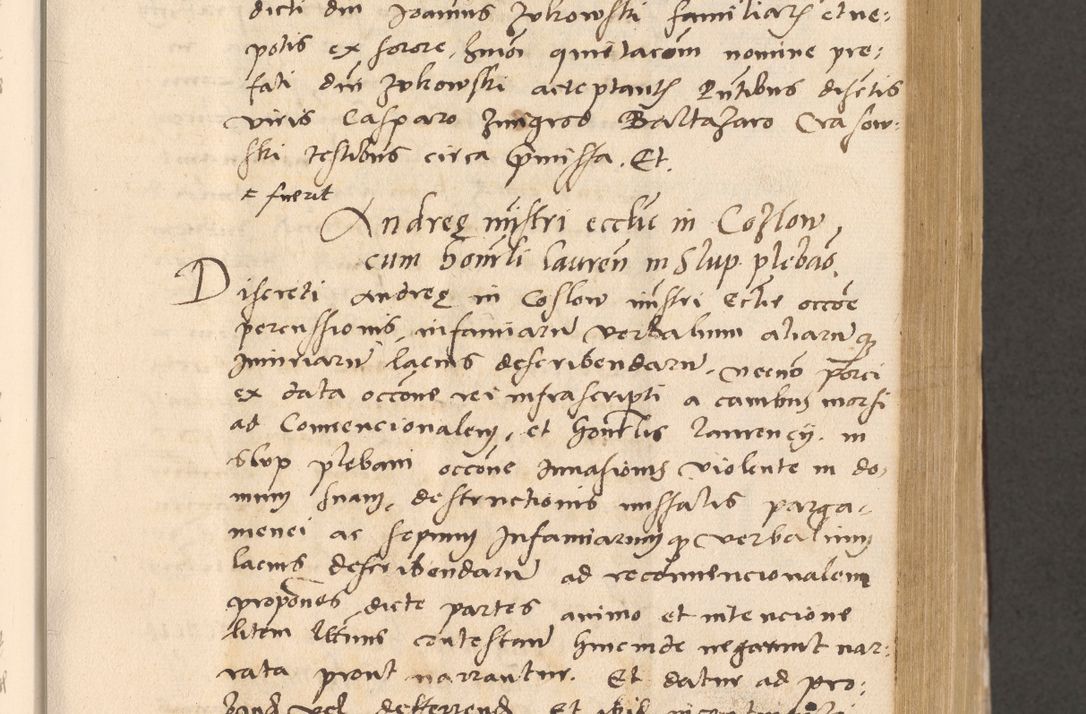 dicti dni Joannis Zukowski familiaris et ne:
potis ex sorore, hmoi quietacom nomine pre:
fati dni Zukowski acceptantis Pntibus discretis
viris Casparo Zmigrod Baltazaro Crasow:
ski testibus circa pmissa. Et.
fuerit
Andreę mistri ecclie in Coslow
cum honrli lauren in Slup plebao
Discreti Andreę in Coslow mistri Eclie occoe
percussionis infamiaru verbalium aliaruq
iniuriaru lacius describendaru, necno porci
ex data occone rei infrascripti a canibus morsi
ad Convencionalem, et honrlis laurencij in
slup plebani occone Invasionis violente in do
mum suam, destructionis missalis parga-
menei ac sepium Infamiarumq verbalium
lacius describendaru ad reconvencionalem
propones dicte partes animo et intencione
litem contestan hincinde negarunt nar:
rata prout narrantur. Et datur ad pro:
band vel defferend Et ibid